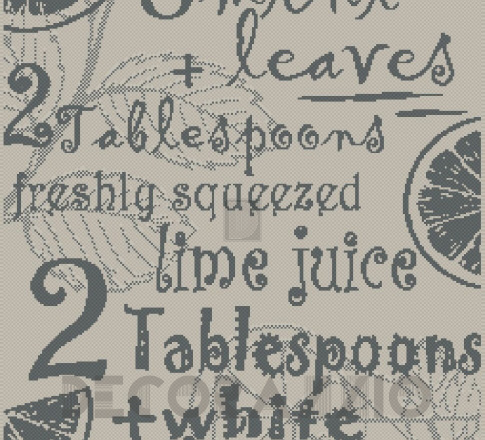 + leaves
2 Tablespoons
freshly squeezed
lime juice
2 Tablespoons
+white